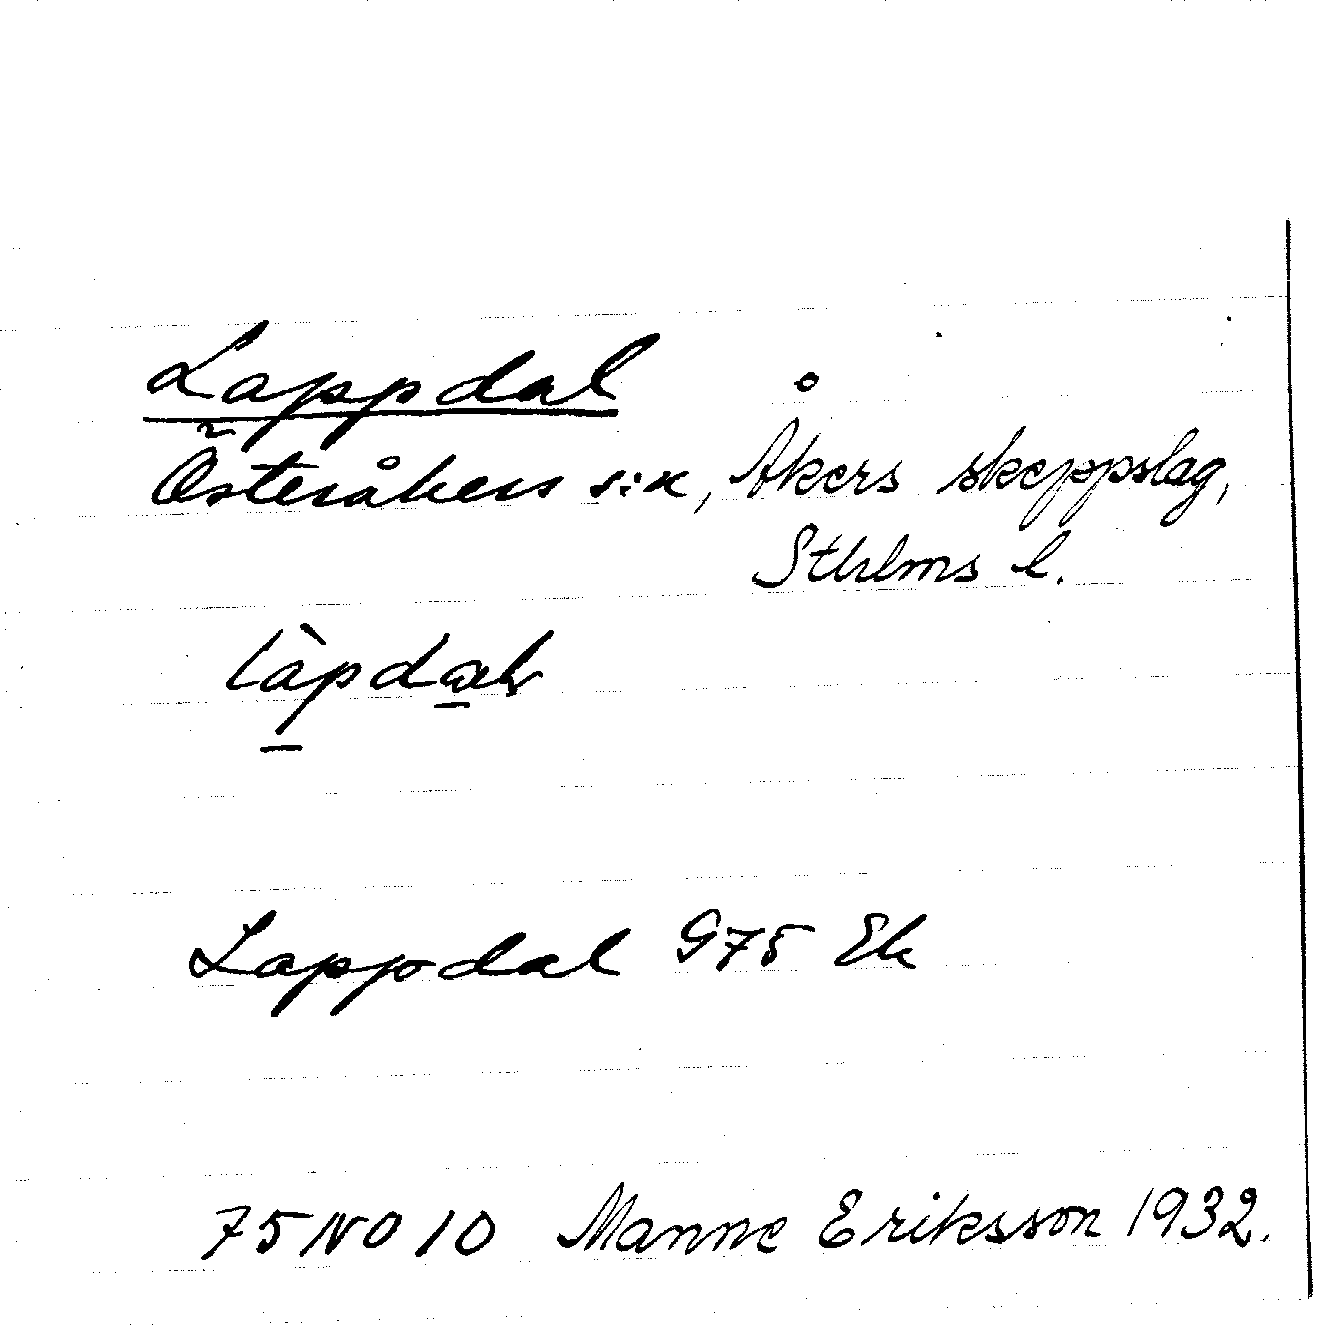 Lappdal
Österåkers sn, Åkers skeppslag,
Sthlms l.
làpdaɫ
Lappdal G75 Ek
75 NO 10 Manne Eriksson 1932.